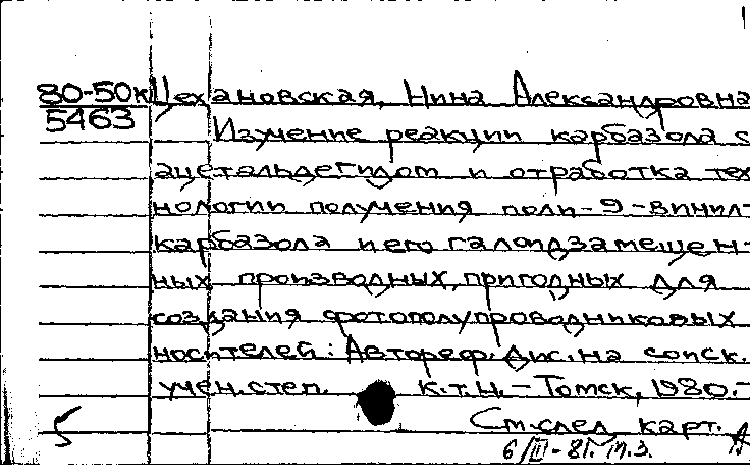 80-50к Цехановская, Нина Александровна
5463 Изучение реакции карбазола с
ацетальдегидом и отработка тех-
нологии получения поли-9-винил-
карбазола и его галоидзамещен-
ных производных, пригодных для
создания фотополупроводниковых
носителей: Автореф. дис. на соиск.
учен. степ. к.т.н. - Томск, 1980.-
См. след. карт.
6/III-81.